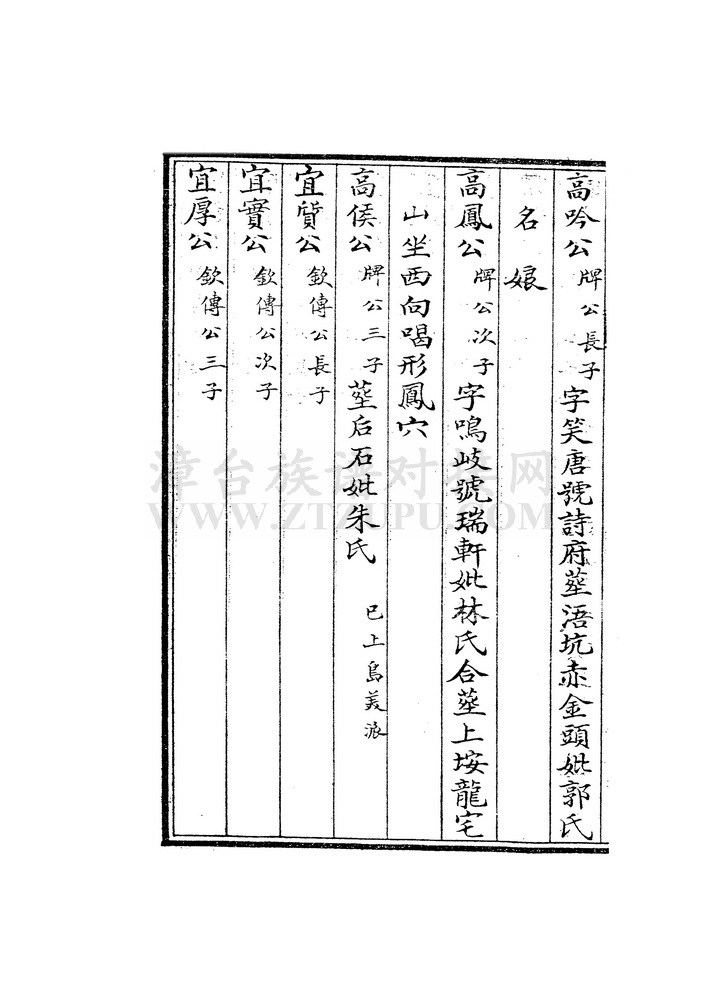 高吟公 牌公長子 字笑唐號詩府塟浯坑赤金頭妣郭氏
名娘
高鳳公 牌公次子 字鳴岐號瑞軒妣林氏合塟上垵龍宅
山坐西向喝形鳳穴
高侯公 牌公三子 塟后石妣朱氏 已上島美派
宜貭公 欽傳公長子
宜實公 欽傳公次子
宜厚公 欽傳公三子
漳台族谱对接网
WWW.ZTZUPU.COM